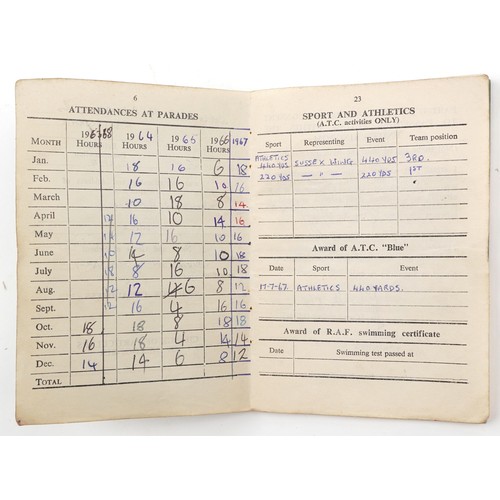 6
ATTENDANCES AT PARADES
MONTH 1963 68 HOURS 1964 HOURS 1965 HOURS 1966 HOURS 1967
Jan. 18 16 6 18
Feb. 16 16 10 16
March 10 18 8 14
April 14 16 10 14 16
May 14 12 16 10 16
June 10 8 10 18
July 18 8 16 10 18
Aug. 12 12 6 8 12
Sept. 12 16 4 16 16
Oct. 18 18 8 18 18
Nov. 16 18 4 14 14
Dec. 14 14 6 8 12
TOTAL
23
SPORT AND ATHLETICS
(A.T.C. activities ONLY)
Sport Representing Event Team position
ATHLETICS
440 YDS SUSSEX WING 440 YDS 3RD.
220 YDS — " — 220 YDS 1ST
Award of A.T.C. "Blue"
Date Sport Event
17-7-67. ATHLETICS 440 YARDS.
Award of R.A.F. swimming certificate
Date Swimming test passed at